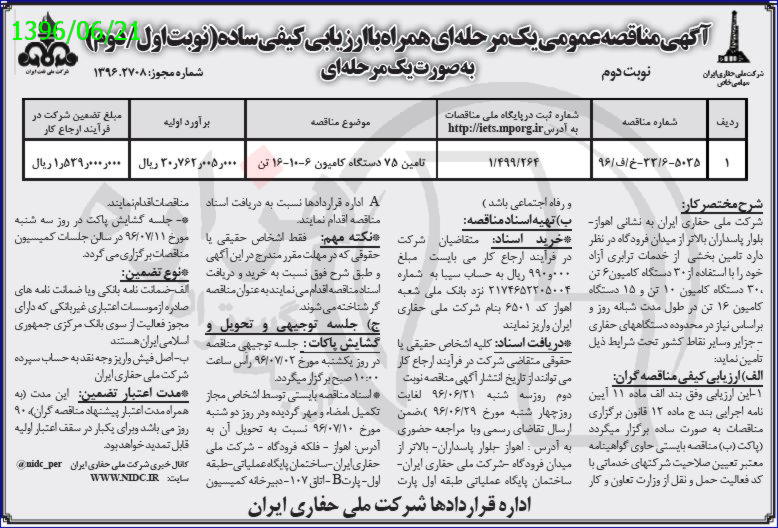 1396/06/21
آگهی مناقصه عمومی یک مرحله‌ای همراه با ارزیابی کیفی ساده (نوبت اول/دوم)
به صورت یک مرحله‌ای
شرکت ملی نفت ایران
شماره مجوز: ۱۳۹۶.۲۷۰۸
نوبت دوم
شرکت ملی حفاری ایران
سهامی خاص
ردیف
شماره مناقصه
شماره ثبت در پایگاه ملی مناقصات
به آدرس http://iets.mporg.ir
موضوع مناقصه
برآورد اولیه
مبلغ تضمین شرکت در
فرآیند ارجاع کار
۱
۹۶/خ/ف-۲۲/۶-۵۰۲۵
۱/۴۹۹/۲۶۴
تامین ۷۵ دستگاه کامیون ۶-۱۰-۱۶ تن
۳۰،۷۶۲،۰۰۵،۰۰۰ ریال
۱،۵۳۹،۰۰۰،۰۰۰ ریال
شرح مختصر کار:
شرکت ملی حفاری ایران به نشانی اهواز-
بلوار پاسداران بالاتر از میدان فرودگاه در نظر
دارد تامین بخشی از خدمات ترابری آزاد
خود را با استفاده از ۳۰ دستگاه کامیون ۶ تن
،۳۰ دستگاه کامیون ۱۰ تن و ۱۵ دستگاه
کامیون ۱۶ تن در طول مدت شبانه روز و
براساس نیاز در محدوده دستگاههای حفاری
- جزایر و سایر نقاط کشور تحت شرایط ذیل
تامین نماید:
الف) ارزیابی کیفی مناقصه گران:
۱-این ارزیابی وفق بند الف ماده ۱۱ آیین
نامه اجرایی بند ج ماده ۱۲ قانون برگزاری
مناقصات به صورت ساده برگزار میگردد
(پاکت (ب) مناقصه بایستی حاوی گواهینامه
معتبر تعیین صلاحیت شرکتهای خدماتی با
کد فعالیت حمل و نقل از وزارت تعاون و کار
و رفاه اجتماعی باشد )
ب) تهیه اسناد مناقصه:
*خرید اسناد: متقاضیان شرکت
در فرآیند ارجاع کار می بایست مبلغ
۹۹۰،۰۰۰ ریال به حساب سیبا به شماره
۲۱۷۴۶۵۲۲۰۵۰۰۴ نزد بانک ملی شعبه
اهواز کد ۶۵۰۱ بنام شرکت ملی حفاری
ایران واریز نمایند
*دریافت اسناد: کلیه اشخاص حقیقی یا
حقوقی متقاضی شرکت در فرآیند ارجاع کار
می توانند از تاریخ انتشار آگهی مناقصه نوبت
دوم روز سه شنبه ۹۶/۰۶/۲۱ لغایت
روز چهار شنبه مورخ ۹۶/۰۶/۲۹ ،ضمن
ارسال تقاضای رسمی و با مراجعه حضوری
به آدرس : اهواز -بلوار پاسداران- بالاتر از
میدان فرودگاه -شرکت ملی حفاری ایران-
ساختمان پایگاه عملیاتی طبقه اول پارت
A اداره قراردادها نسبت به دریافت اسناد
مناقصه اقدام نمایند.
*نکته مهم: فقط اشخاص حقیقی یا
حقوقی که در مهلت مقرر مندرج در این آگهی
و طبق شرح فوق نسبت به خرید و دریافت
اسناد مناقصه اقدام می نمایند به عنوان مناقصه
گر شناخته می شوند.
ج) جلسه توجیهی و تحویل و
گشایش پاکات: جلسه توجیهی مناقصه
در روز یکشنبه مورخ ۹۶/۰۷/۰۲ راس ساعت
۱۰:۰۰ صبح برگزار میگردد.
* اسناد مناقصه بایستی توسط اشخاص مجاز
تکمیل ،امضاء و مهر گردیده و در روز دو شنبه
مورخ ۹۶/۰۷/۱۰ نسبت به تحویل آن به
آدرس: اهواز - فلکه فرودگاه - شرکت ملی
حفاری ایران-ساختمان پایگاه عملیاتی-طبقه
اول- پارت B-اتاق ۱۰۷-دبیرخانه کمیسیون
مناقصات اقدام نمایند.
*- جلسه گشایش پاکت در روز سه شنبه
مورخ ۹۶/۰۷/۱۱ در سالن جلسات کمیسیون
مناقصات برگزار می گردد.
*نوع تضمین:
الف-ضمانت نامه بانکی و یا ضمانت نامه های
صادره از موسسات اعتباری غیربانکی که دارای
مجوز فعالیت از سوی بانک مرکزی جمهوری
اسلامی ایران هستند
ب-اصل فیش واریز وجه نقد به حساب سپرده
شرکت ملی حفاری ایران
*مدت اعتبار تضمین: این مدت (به
همراه مدت اعتبار پیشنهاد مناقصه گران)، ۹۰
روز می باشد و برای یکبار در سقف اعتبار اولیه
قابل تمدید خواهد بود.
کانال خبری شرکت ملی حفاری ایران @nidc_per
سایت: WWW.NIDC.IR
اداره قراردادها شرکت ملی حفاری ایران